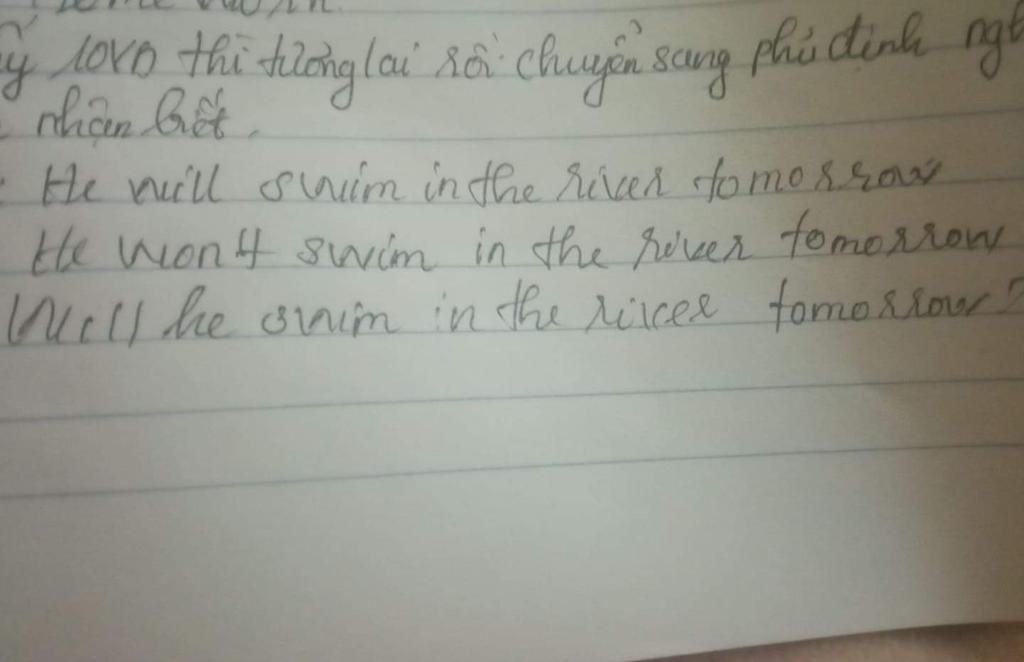 ý 10VD thì tương lai rồi chuyển sang phủ định
nhận biết.
He will swim in the river tomorrow
He won't swim in the river tomorrow
Will he swim in the river tomorrow?